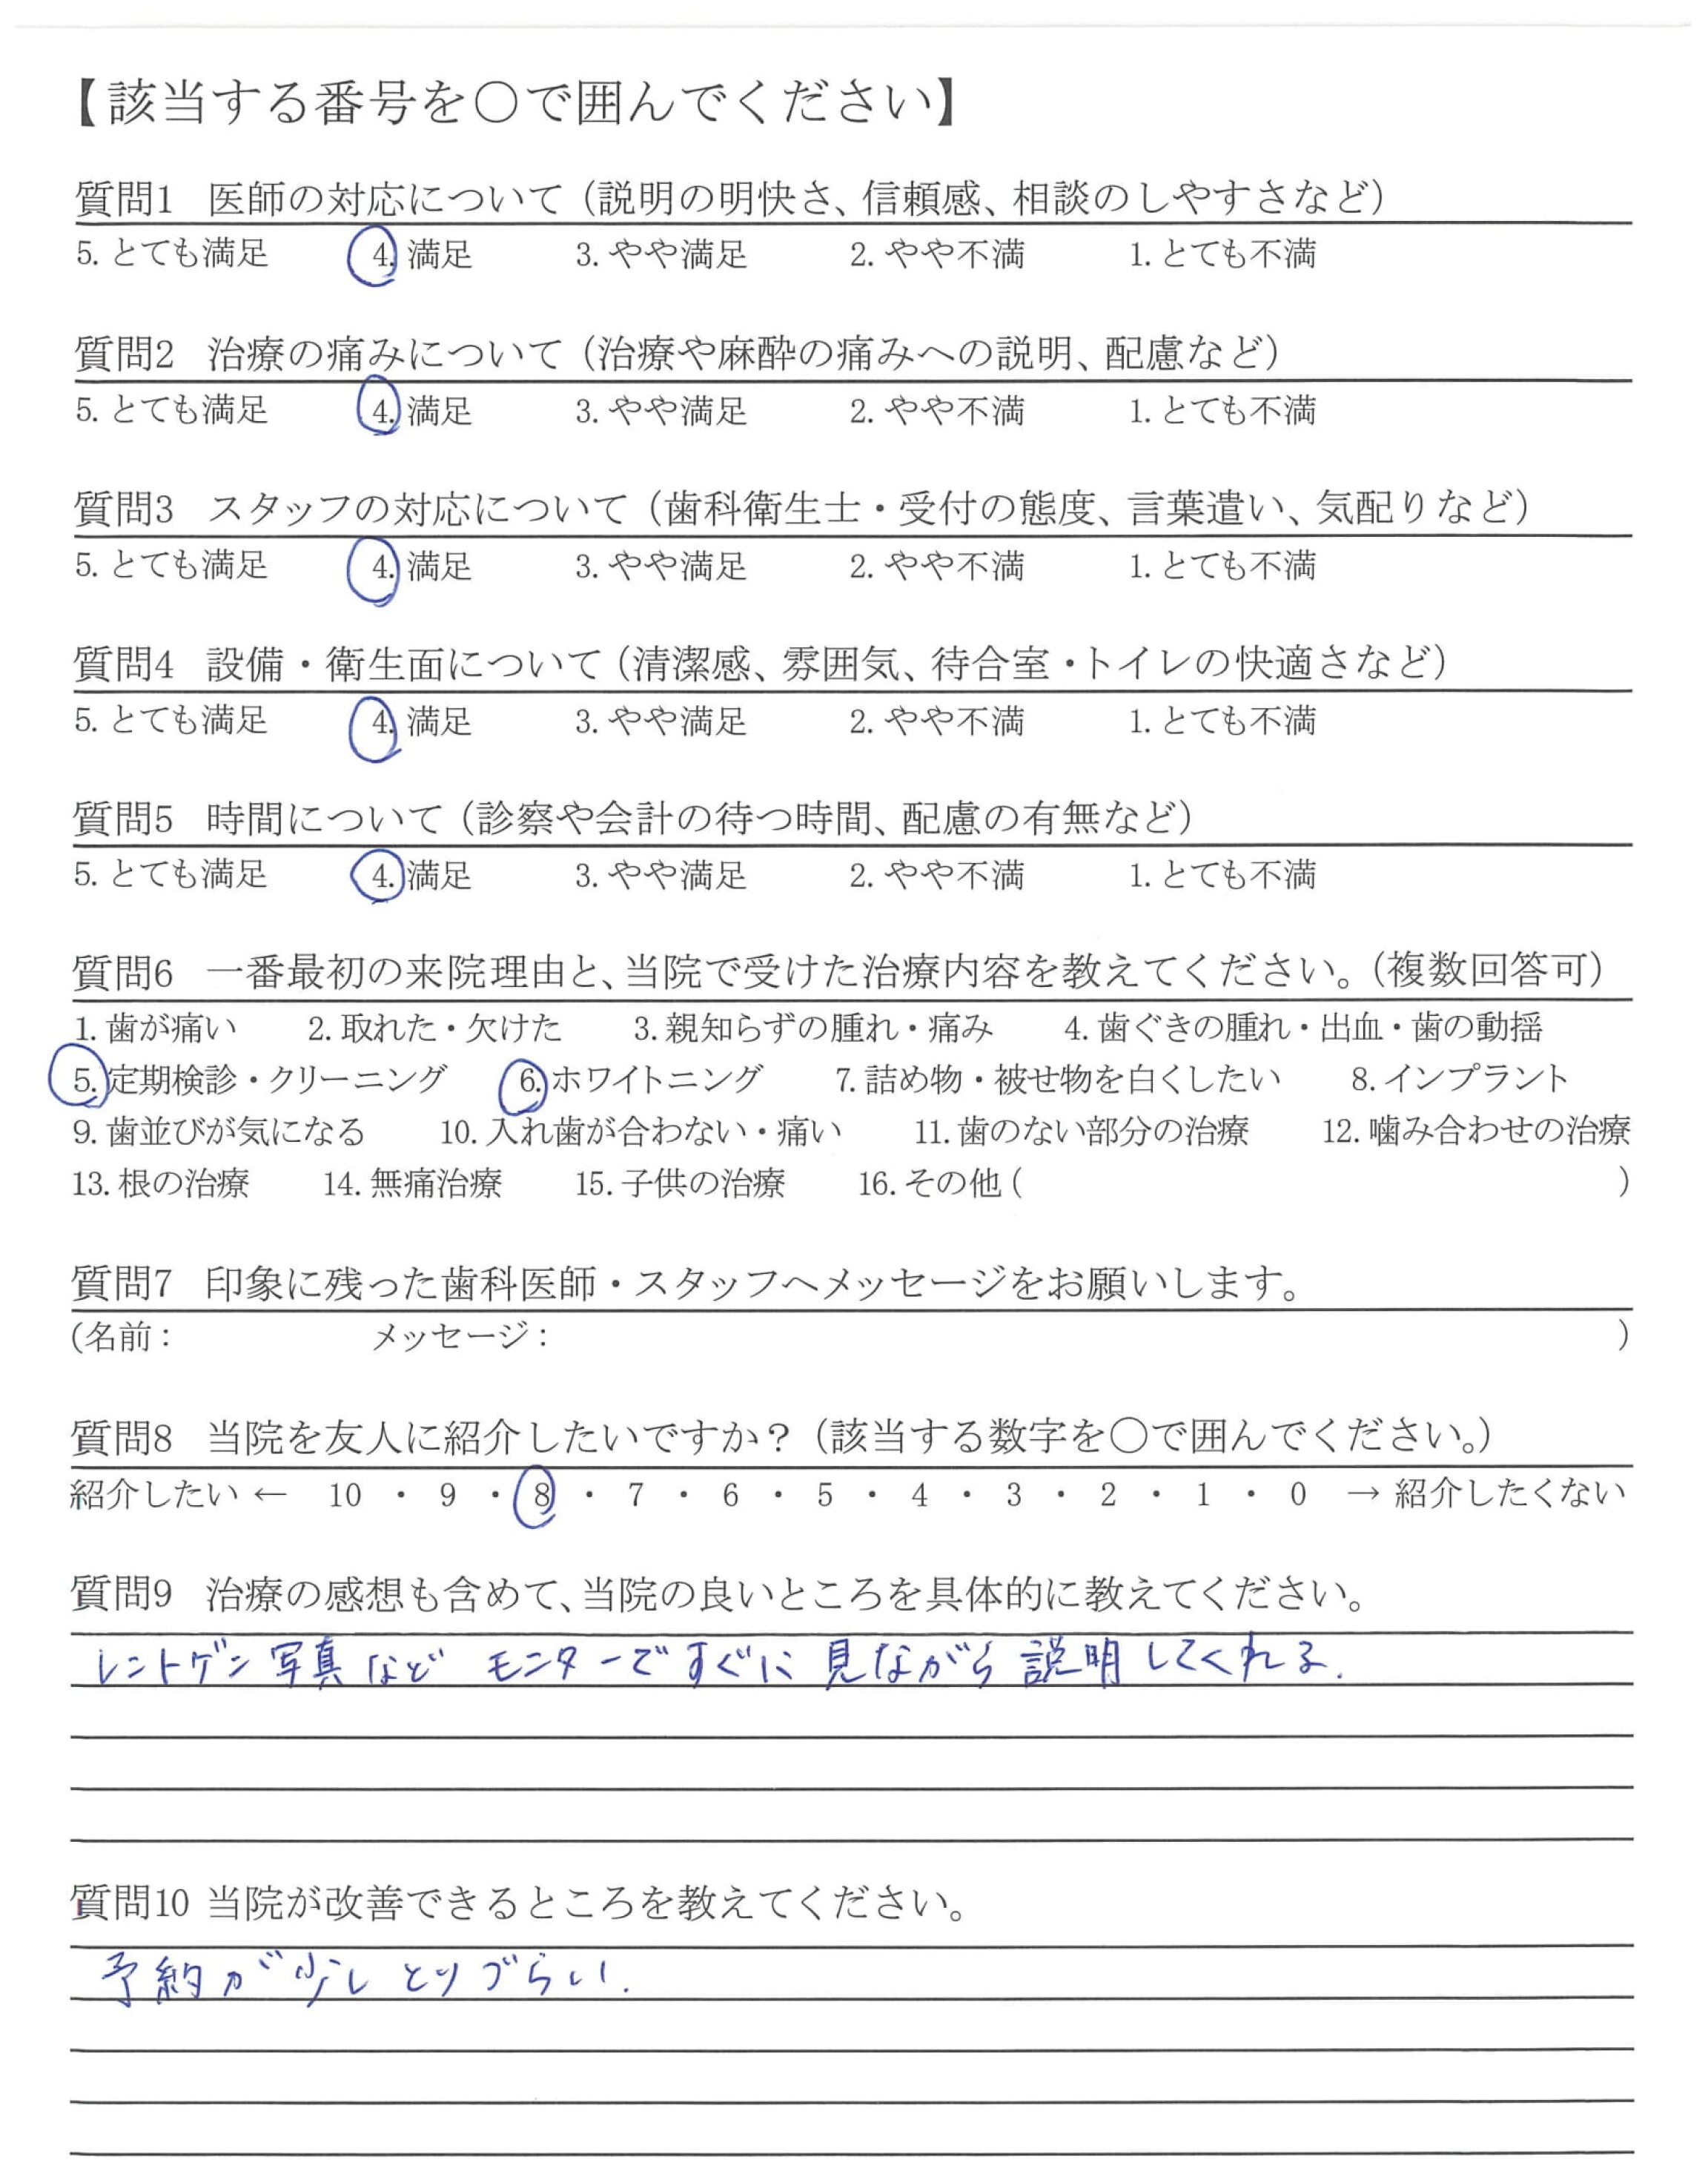 【該当する番号を○で囲んでください】
質問1 医師の対応について（説明の明快さ、信頼感、相談のしやすさなど）
5. とても満足 4. 満足 3. やや満足 2. やや不満 1. とても不満
質問2 治療の痛みについて（治療や麻酔の痛みへの説明、配慮など）
5. とても満足 4. 満足 3. やや満足 2. やや不満 1. とても不満
質問3 スタッフの対応について（歯科衛生士・受付の態度、言葉遣い、気配りなど）
5. とても満足 4. 満足 3. やや満足 2. やや不満 1. とても不満
質問4 設備・衛生面について（清潔感、雰囲気、待合室・トイレの快適さなど）
5. とても満足 4. 満足 3. やや満足 2. やや不満 1. とても不満
質問5 時間について（診察や会計の待つ時間、配慮の有無など）
5. とても満足 4. 満足 3. やや満足 2. やや不満 1. とても不満
質問6 一番最初の来院理由と、当院で受けた治療内容を教えてください。（複数回答可）
1. 歯が痛い 2. 取れた・欠けた 3. 親知らずの腫れ・痛み 4. 歯ぐきの腫れ・出血・歯の動揺
5. 定期検診・クリーニング 6. ホワイトニング 7. 詰め物・被せ物を白くしたい 8. インプラント
9. 歯並びが気になる 10. 入れ歯が合わない・痛い 11. 歯のない部分の治療 12. 噛み合わせの治療
13. 根の治療 14. 無痛治療 15. 子供の治療 16. その他（ ）
質問7 印象に残った歯科医師・スタッフへメッセージをお願いします。
（名前： メッセージ： ）
質問8 当院を友人に紹介したいですか？（該当する数字を○で囲んでください。）
紹介したい ← 10 ・ 9 ・ 8 ・ 7 ・ 6 ・ 5 ・ 4 ・ 3 ・ 2 ・ 1 ・ 0 → 紹介したくない
質問9 治療の感想も含めて、当院の良いところを具体的に教えてください。
レントゲン写真など モニターですぐに見ながら説明してくれる.
質問10 当院が改善できるところを教えてください。
予約が少しとりづらい.